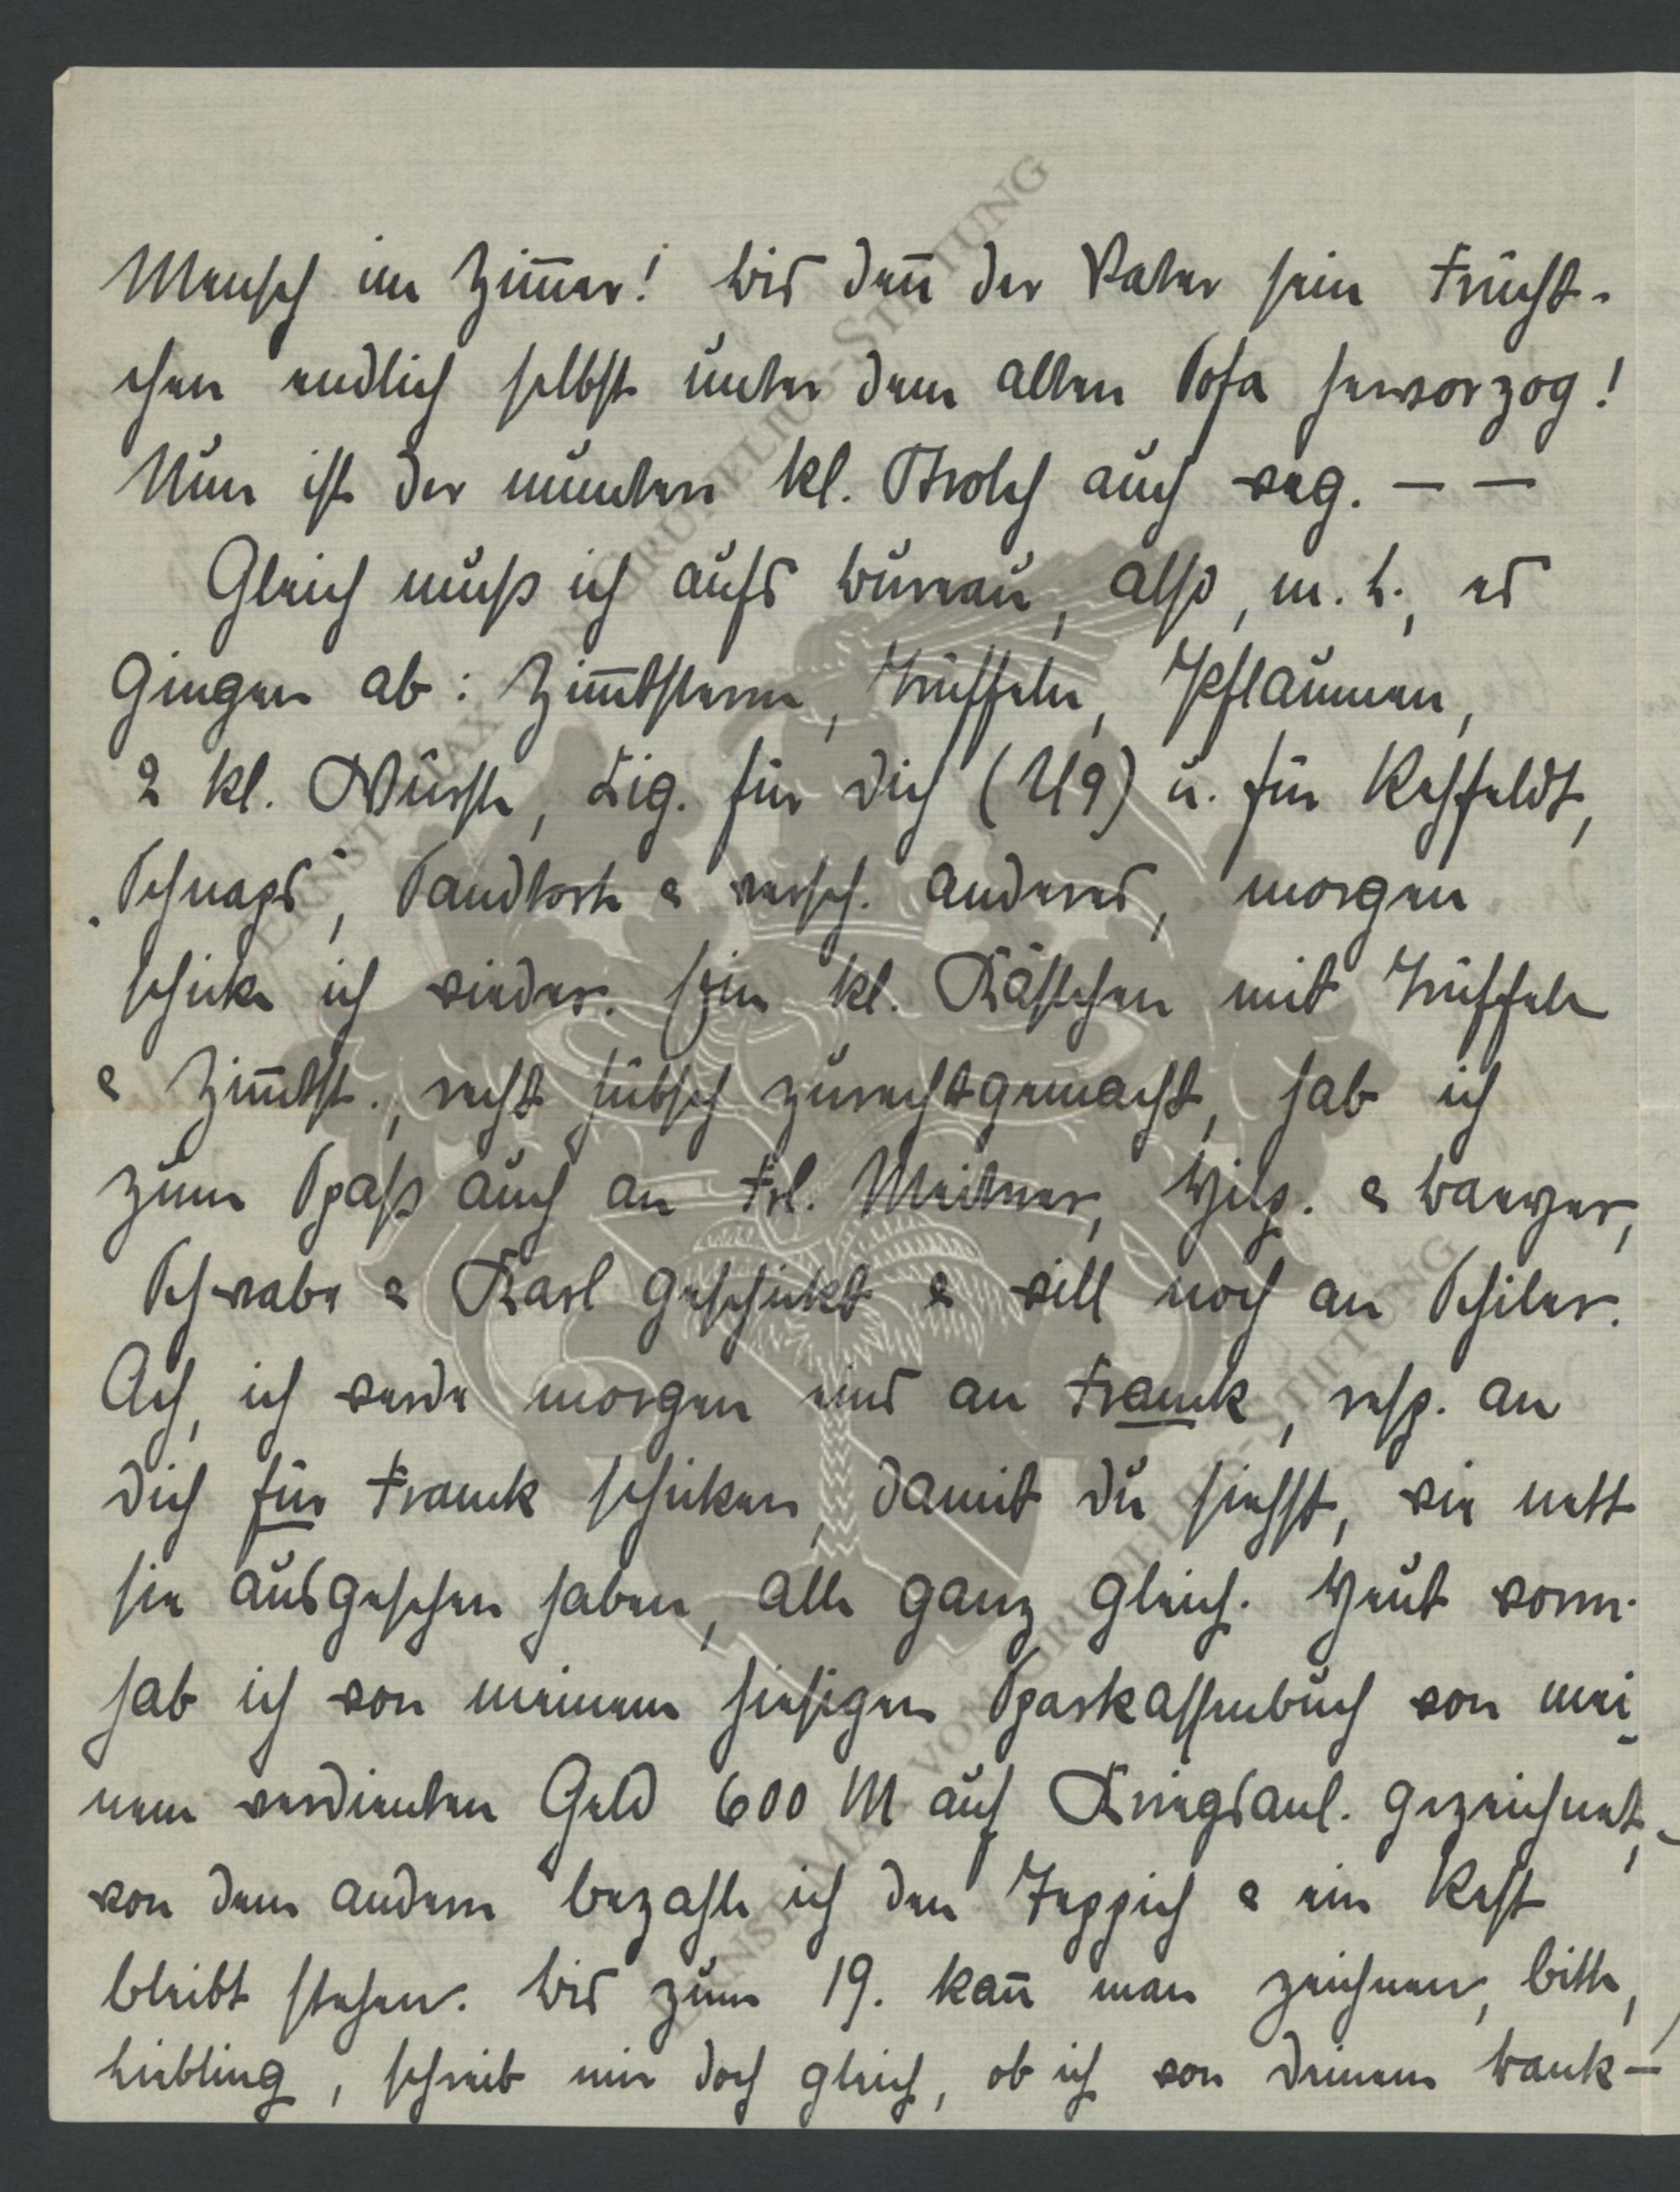 Mensch im Zim̄er! Bis den̄ der Vater sein Frücht-
chen endlich selbst unter dem alten Sofa hervorzog!
Nun ist der muntere kl. Strolch auch weg. — —
Gleich muß ich aufs Bureau, also, m. L., es
gingen ab: Zim̄tsterne, Trüffeln, Pflaumen,
2 kl. Würste, Zig. für Dich (U9) u. für Rehfeldt,
„Schnaps", Sandtorte & versch. anderes, morgen
schicke ich wieder. Ein kl. Kästchen mit Trüffeln
& Zim̄tst., recht hübsch zurechtgemacht, hab ich
zum Spaß auch an Frl. Meitner, Hilp. & Baeyer,
Schwabe & Karl geschickt & will noch an Schiler.
Ach, ich werde morgen eins an Franck, resp. an
Dich für Franck schicken, damit Du siehst, wie nett
sie ausgesehen haben, alle ganz gleich. Heut vorm.
hab ich von meinem hiesigen Sparkassenbuch von mei-
nem verdienten Geld 600 M auf Kriegsanl. gezeichnet,
von dem andern bezahle ich den Teppich & ein Rest
bleibt stehen. Bis zum 19. kan̄ man zeichnen, bitte,
Liebling, schreib mir doch gleich, ob ich von Deinem Bank-
ERNST-MAX-VON-GRUNELIUS-STIFTUNG
ERNST-MAX-VON-GRUNELIUS-STIFTUNG